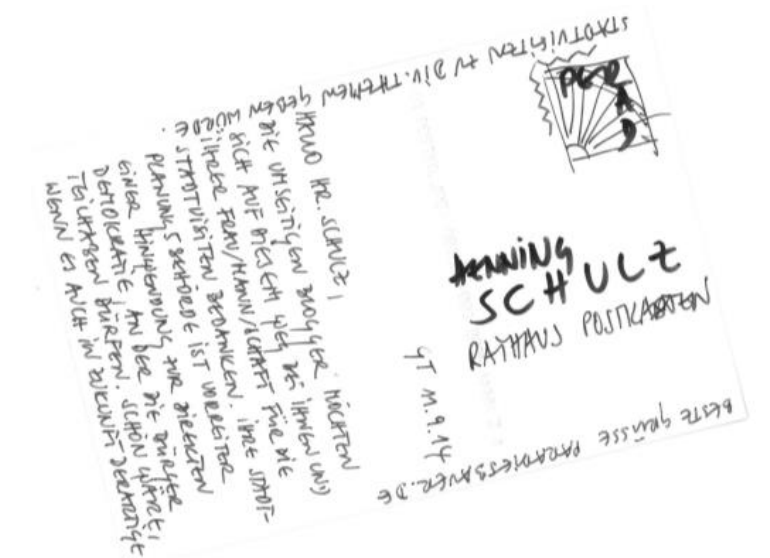 HALLO HR. SCHULZ,
DIE UMSEITIGEN BLOGGER MÖCHTEN
SICH AUF DIESEM WEG BEI IHNEN UND
IHRER FRAU/MANN/SCHAFT FÜR DIE
STADTVISITEN BEDANKEN. IHRE STADT-
PLANUNGSBEHÖRDE IST VORREITER
EINER HINWENDUNG ZUR DIREKTEN
DEMOKRATIE, AN DER DIE BÜRGER
TEILHABEN DÜRFEN. SCHÖN WÄRE,
WENN ES AUCH IN ZUKUNFT DERARTIGE
STADTVISITEN ZU DIV. THEMEN GEBEN WÜRDE.
BESTE GRÜSSE PARADIESBAUER.DE
GT 11.9.14
HENNING
SCHULZ
RATHAUS POSTKARTEN